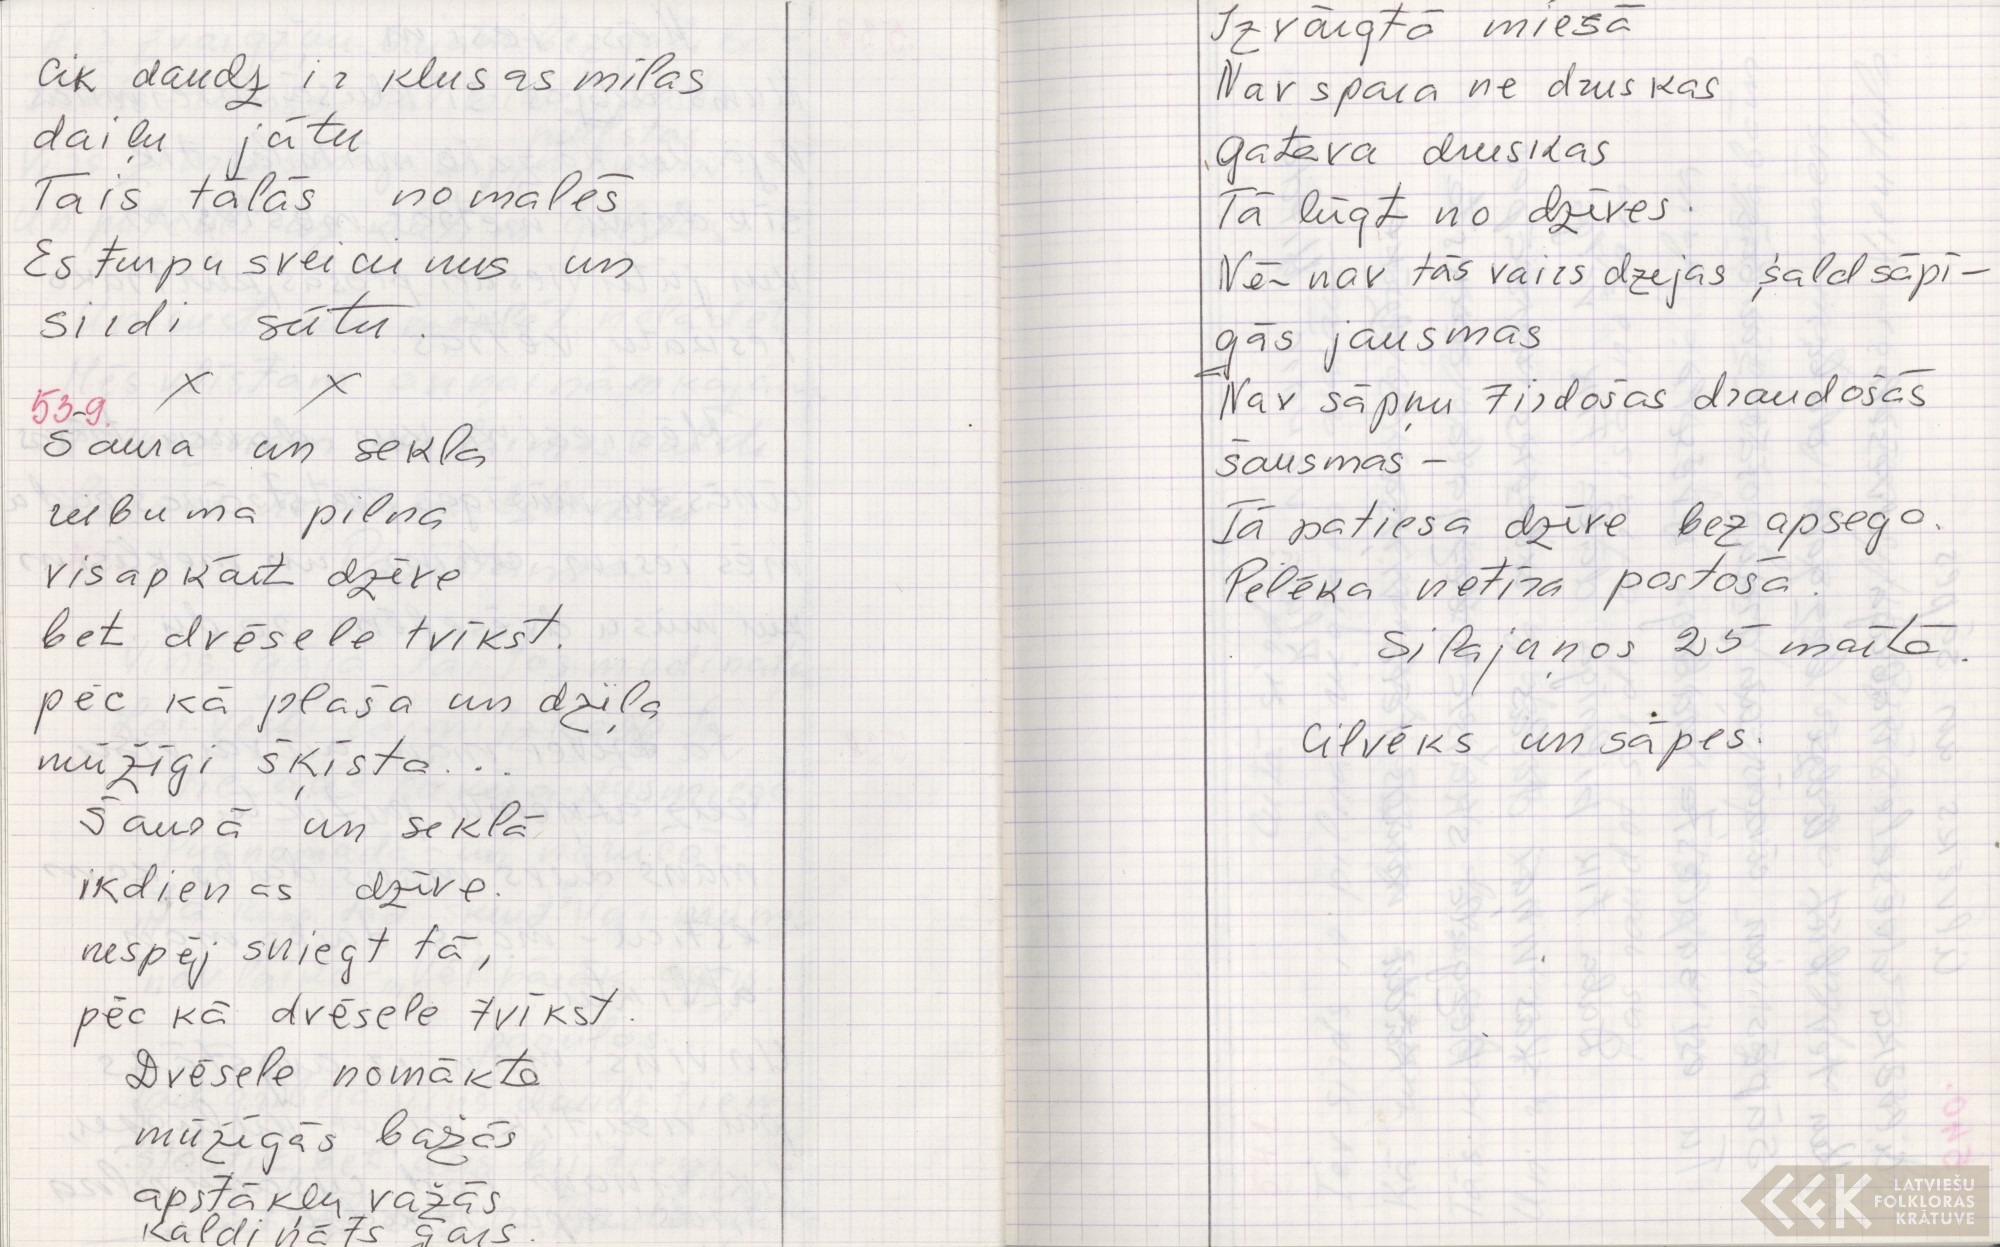 Cik daudz ir klusas mīlas
daiļu jātu
Tais tālās nomalēs
Es turpu sveicinus un
sirdi sūtu.
x x
53-9.
Šaura un sekla
rūbuma pilna
visapkārt dzīve
bet drēsele tvīkst.
pēc kā plaša un dziļa
mūžīgi šķīsta...
Šaurā un seklā
ikdienas dzīve.
nespēj sniegt tā,
pēc kā dvēsele tvīkst.
Dvēsele nomākta
mūžīgās bažās
apstākļu važās
kaldināts gars.
Izvārgtā miesā
Nav spara ne druskas
gatava druskas
Tā lūgt no dzīves.
Nē- nav tās vairs dzejas šaldsāpī-
gās jausmas
Nav sāpņu zirdošas draudošās
šausmas -
Tā patiesa dzīve bez apsega.
Pelēka netīra postoša.
Silajaņos 25 martā.
Cilvēks un sāpes.
LATVIEŠU
FOLKLORAS
KRĀTUVE